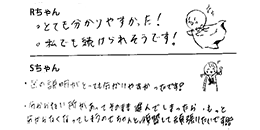 Rちゃん
・とても分かりやすかった!
・私でも続けられそうです!
Sちゃん
・説明がとっても分かりやすかったです!
・分からない所があってそのまま進んでしまったら、もっと
分からなくなってしまうのでちゃんと復習して頑張りたいです!